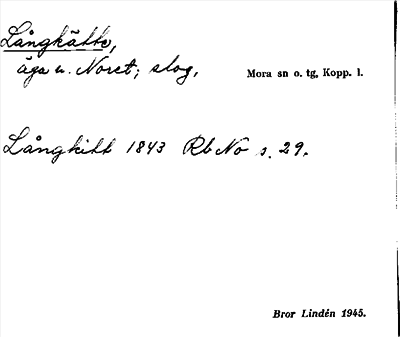 Långkätte,
äga u. Noret; slog. Mora sn o. tg, Kopp. l.
Långkitt 1843 Rb No s. 29.
Bror Lindén 1945.